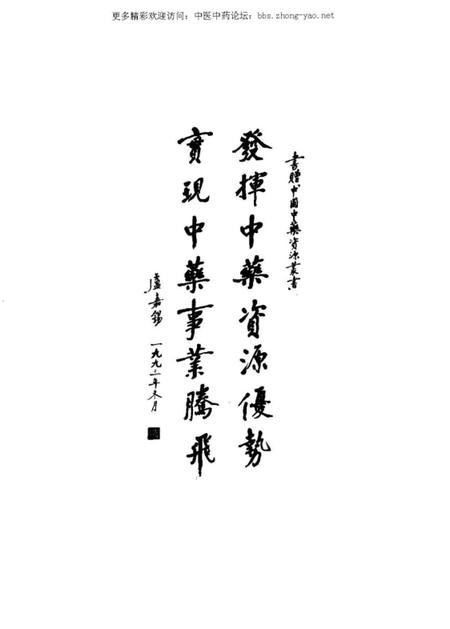 更多精彩欢迎访问：中医中药论坛：bbs.zhong-yao.net
書贈中国中藥資源叢書
發揮中藥資源優勢
實現中藥事業騰飛
盧嘉錫 一九九二年冬月